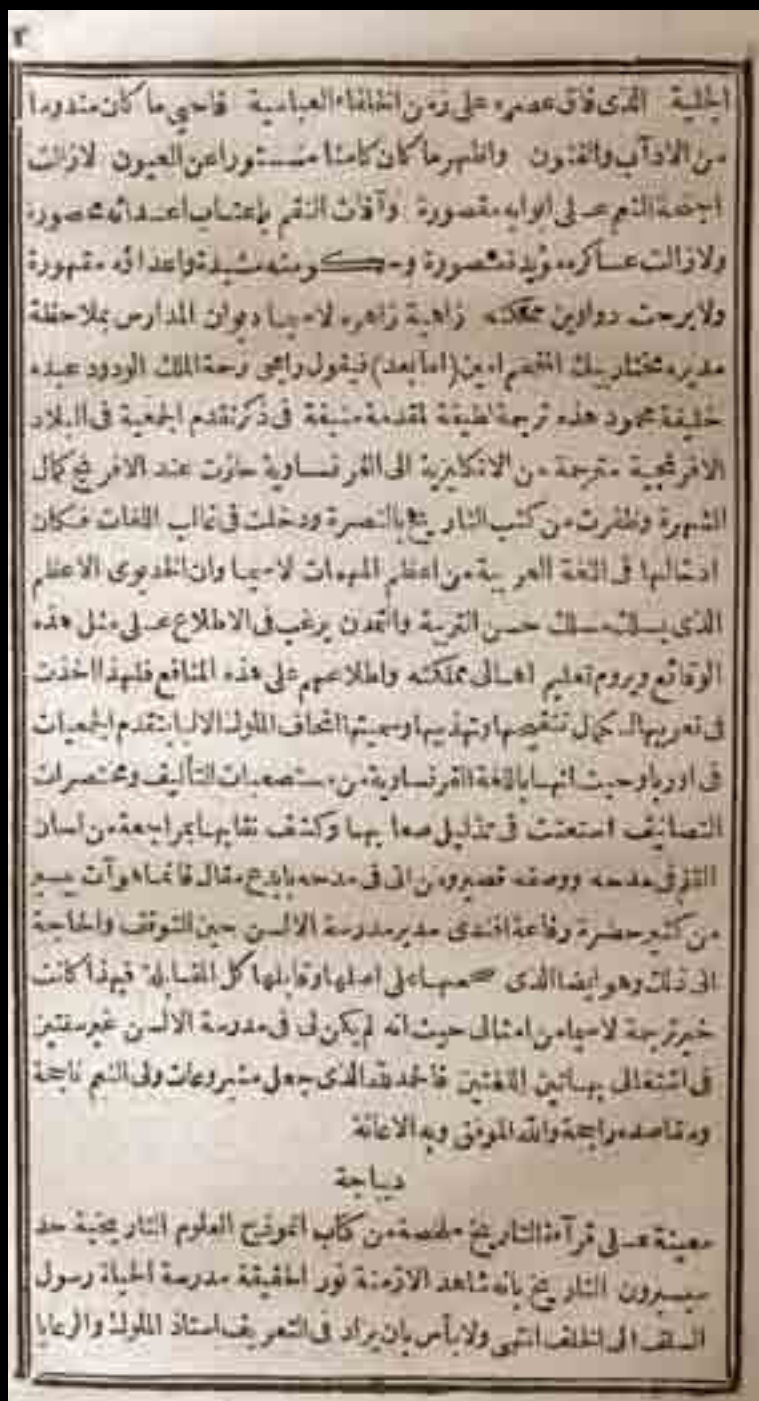 ٣
الجلية الذى فاق عصره على زمن الخلفاء العباسية فاحيى ما كان مندرسا
من الآداب والفنون واظهر ما كان كامنا مستورا عن العيون لا زالت
اجنحة النعم على ابوابه مقصورة وآفات النقم باعتاب اعدائه محصورة
ولا زالت عساكره مؤيدة منصورة وحكومته مشيدة واعداؤه مقهورة
ولا برحت دواوين مملكته زاهية زاهره لاسيما ديوان المدارس بملاحظة
مديره مختار بيك الفخيم امين (اما بعد) فيقول راجى رحمة الملك الودود عبده
خليفة محمود هذه ترجمة لطيفة لمقدمة منيفة فى ذكر تقدم الجمعية فى البلاد
الافرنجية مترجمة من الانكليزية الى الفرنساوية حازت عند الافرنج كمال
الشهرة وظفرت من كتب التاريخ بالنصرة ودخلت فى غالب اللغات فكان
ادخالها فى اللغة العربية من اعظم المهمات لاسيما وان الخديوى الاعظم
الذى يسلك مسلك حسن التربية والتمدن يرغب فى الاطلاع على مثل هذه
الوقائع ويروم تعليم اهالى مملكته واطلاعهم على هذه المنافع فلهذا اخذت
فى تعريبها لكمال تنقيحها وتهذيبها وسميتها اتحاف الملوك الالبا بتقدم الجمعيات
فى اوربا وحيث انها باللغة الفرنساوية من مستصعبات التأليف ومختصرات
التصانيف استعنت فى تذليل صعابها وكشف نقابها بمراجعة من لسان
القلم فى مدحه ووصفه قصير ومن اتى فى مدحه بابدع مقال فانما هو آت بيسير
من كثير حضرة رفاعة افندى مدير مدرسة الالسن حين التوقف والحاجة
الى ذلك وهو ايضا الذى صححها على اصلها وقابلها كل المقابلة فبهذا كانت
خير ترجمة لاسيما من امثالى حيث انه لم يكن لى فى مدرسة الالسن غير سنتين
فى اشتغالى بهاتين اللغتين فالحمد لله الذى جعل مشروعات ولى النعم ناجحة
ومقاصده راجحة والله الموفق وبه الاعانة
ديباجة
معينة على قرآءة التاريخ ملخصة من كتاب انموذج العلوم التاريخية حد
سيسرون التاريخ بانه شاهد الازمنة نور الحقيقة مدرسة الحياة رسول
السلف الى الخلف انتهى ولا بأس بان يراد فى التعريف استاذ الملوك والرعايا